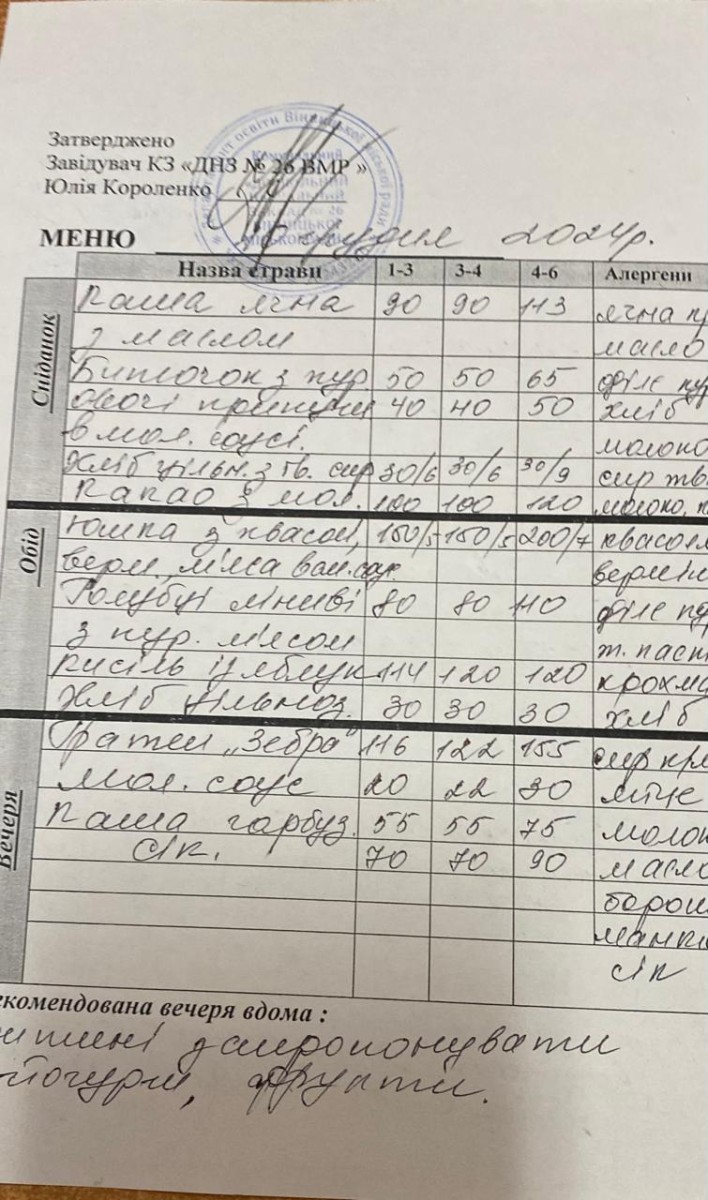 Затверджено
Завідувач КЗ «ДНЗ № 26 ВМР »
Юлія Короленко
МЕНЮ грудня 2024р.
Назва страви 1-3 3-4 4-6 Алергени
Сніданок
Каша ячна 90 90 113 ячна
з маслом масло
Биточок з кур. 50 50 65 філе
овочі припущ 40 40 50 хліб
в мол. соусі. молоко
Хліб цільн. з тв. сир 30/6 30/6 30/9 сир тв.
Какао з мол. 100 100 120 молоко,
Обід
Юшка з квасол, 150/5 150/5 200/7 квасол
верм, м'яса
Голубці ліниві 80 80 110 філе
з кур. м'ясом т. паст
кисіль із яблук 114 120 120 крохм
Хліб цільноз. 30 30 30 хліб
Вечеря
"Зебра" 116 122 155 сир
мол. соус 20 22 30 яйце
Каша гарбуз. 55 55 75 молок
сік. 70 70 90 масло
борош
манк
сік
екомендована вечеря вдома :
запропонувати
йогурт, фрукти.